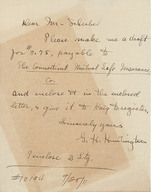 Dear Mr. Schuler
Please make me a draft
for $3.75, payable to
The Connecticut Mutual Life Insurance
Co.
and enclose it in the enclosed
letter, & give it to to register,
Sincerely yours
G. H. Huntington
I enclose a